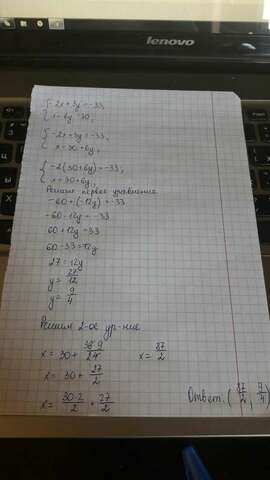 lenovo
{-2x+3y=-33,
{x-6y=30,
{-2x+3y=-33,
{x=30+6y,
{-2(30+6y)=-33,
{x=30+6y,
Решим первое уравнение
-60+(-12y)=-33
-60-12y=-33
60+12y=33
60-33=12y
27=12y
y=27/12
y=9/4
Решим 2-ое ур-ние
x=30+ x=87/2
x=30+27/2
x=30·2/2+27/2
Ответ. (87/2; 9/4)